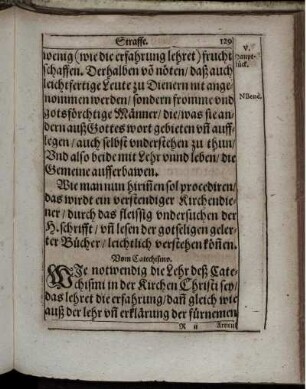 Straffe. 129
wenig (wie die erfahrung lehret) frucht
schaffen. Derhalben võ nöten / daß auch
leichtfertige Leute zu Dienern nit ange-
nommen werden / sondern fromme vnd
gotsförchtige Männer / die / was sie an
dern auß Gottes wort gebieten vñ auff-
legen / auch selbst vnderstehen zu thun /
Vnd also beide mit Lehr vnnd leben / die
Gemeine aufferbawen.
V.
Haupt-
stück.
NBene.
Wie man nun hirin̄en sol procediren /
das wirdt ein verstendiger Kirchendie-
ner / durch das fleissig vndersuchen der
H. schrifft / vñ lesen der gotseligen geler-
ter Bücher / leichtlich verstehen kön̄en.
Vom Catechismo.
WIe notwendig die Lehr deß Cate-
chismi in der Kirchen Christi sey /
das lehret die erfahrung / dañ gleich wie
auß der lehr vñ erklärung der fürnemen
R ij